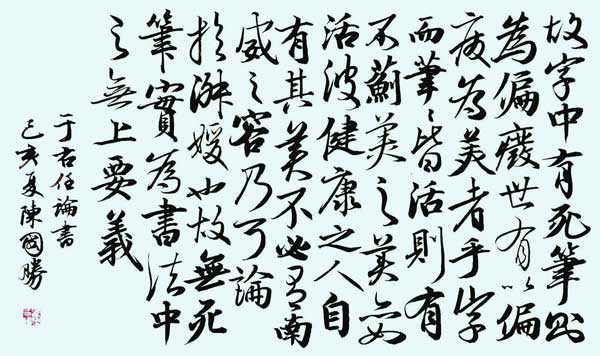 故字中有死筆則
為偏癈世有以偏
癈為美者乎字
而筆〻皆活則有
不蘄美之美如
活波健康之人自
有其美不必有南
威之容乃可論
於淑媛也故無死
筆實為書法中
之無上要義
于右任論書
己亥夏陳國勝